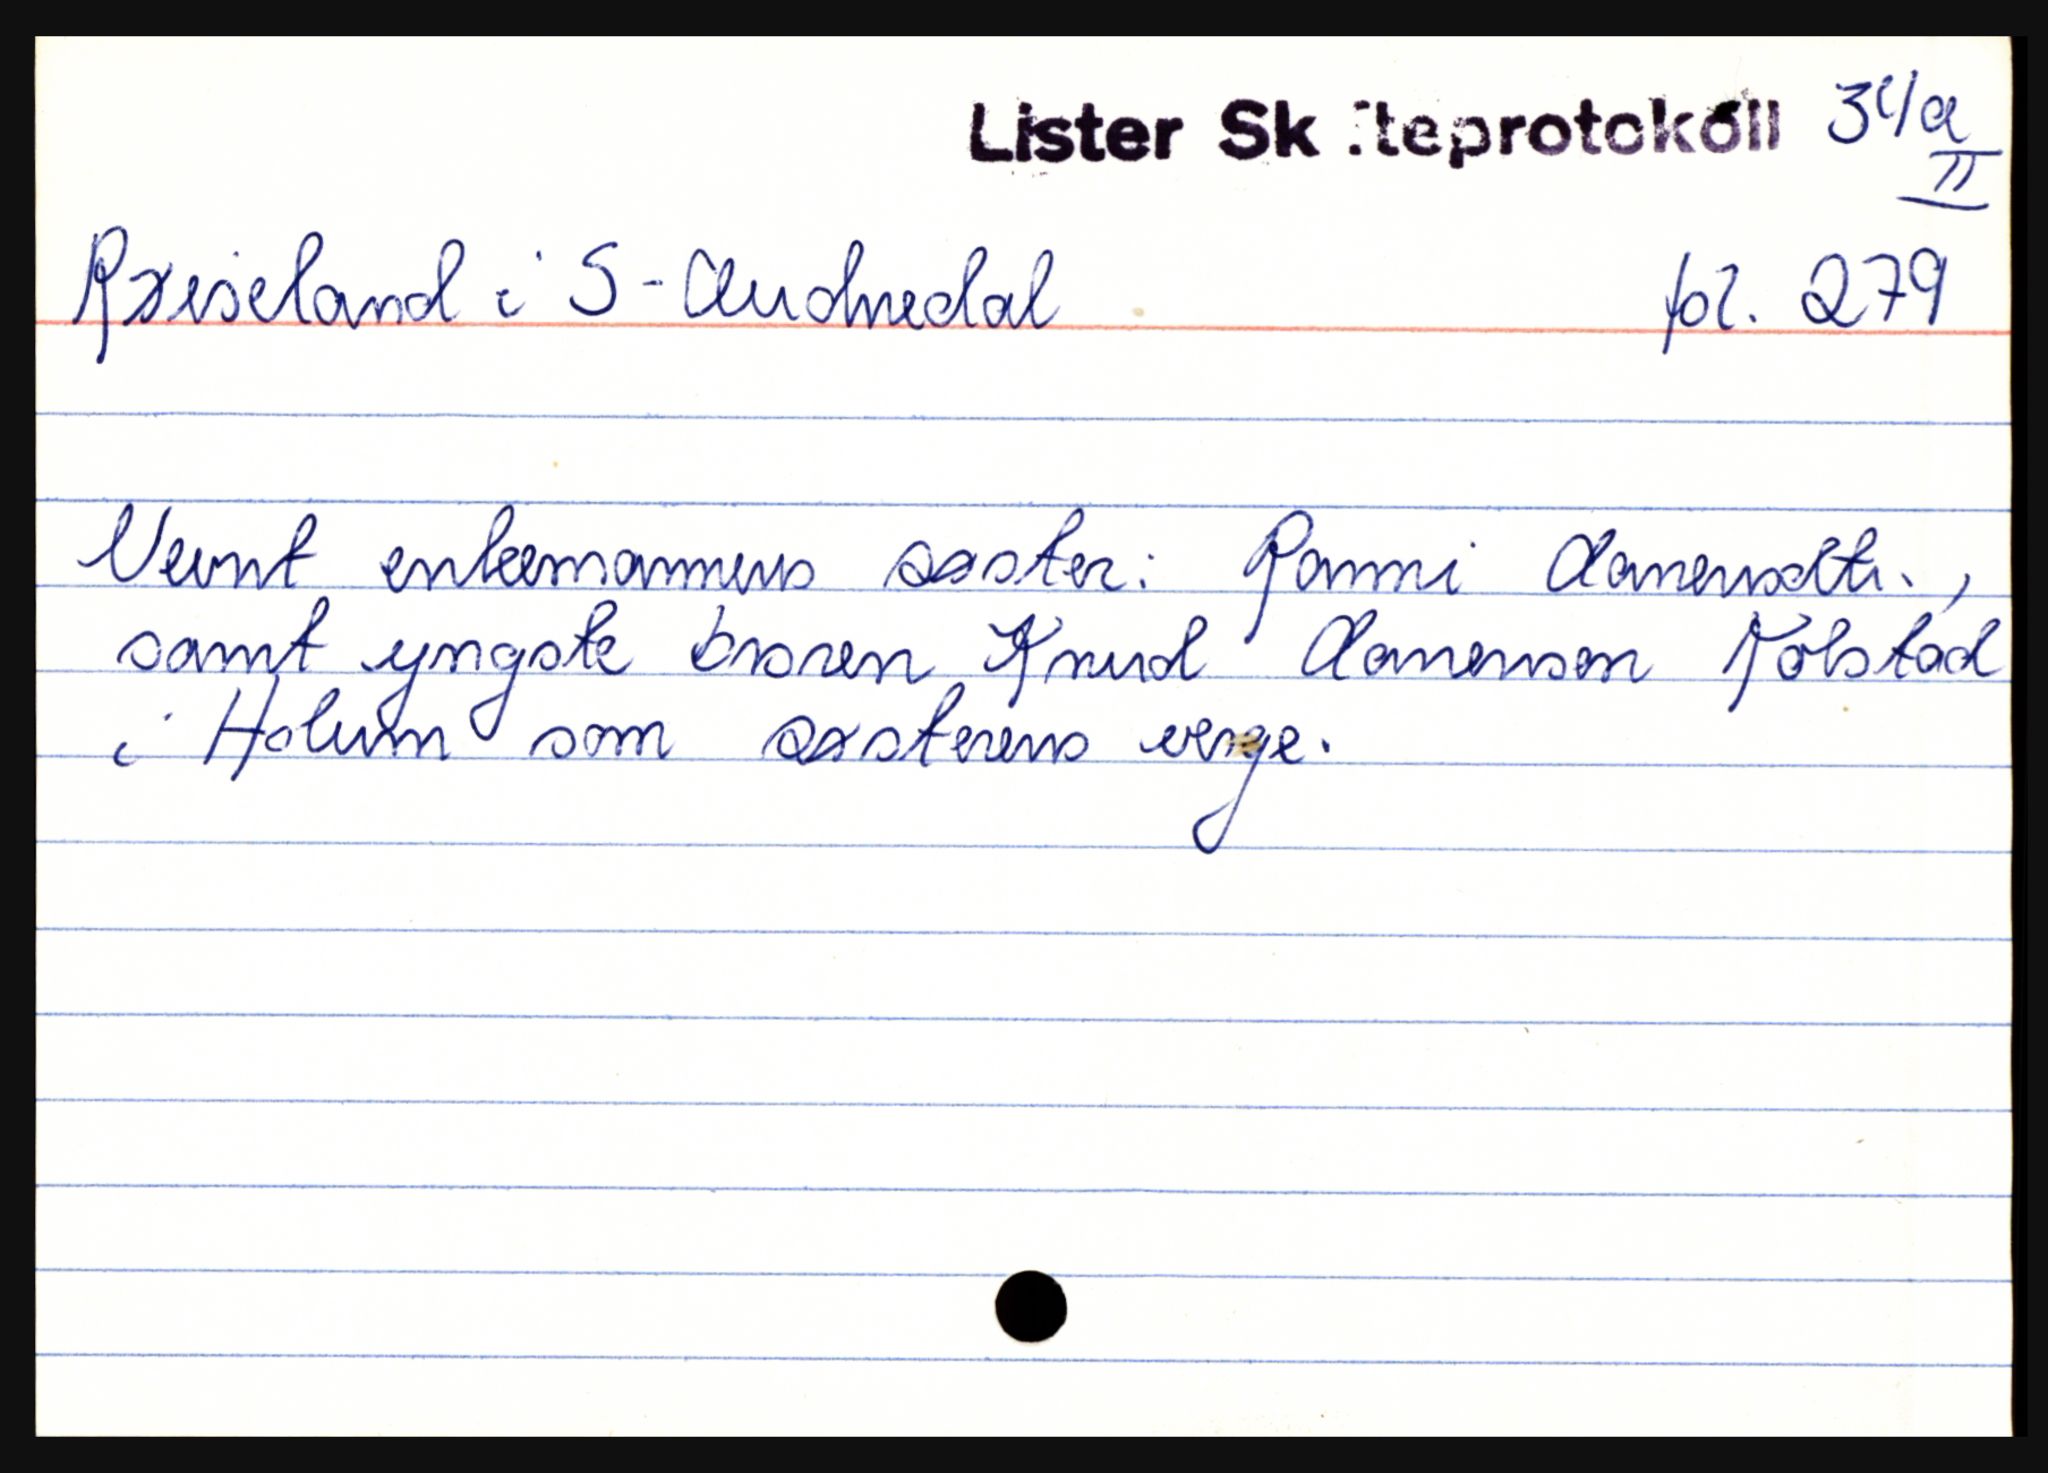 Lister Skifteprotokoll 34/a
II
Røiseland i S-Audnedal fol. 279
Nevnt enkemannens søster: Ranni Aanensdtr.,
samt yngste broren Knud Aanensen Kölstad
i Holum som søsterens verge.